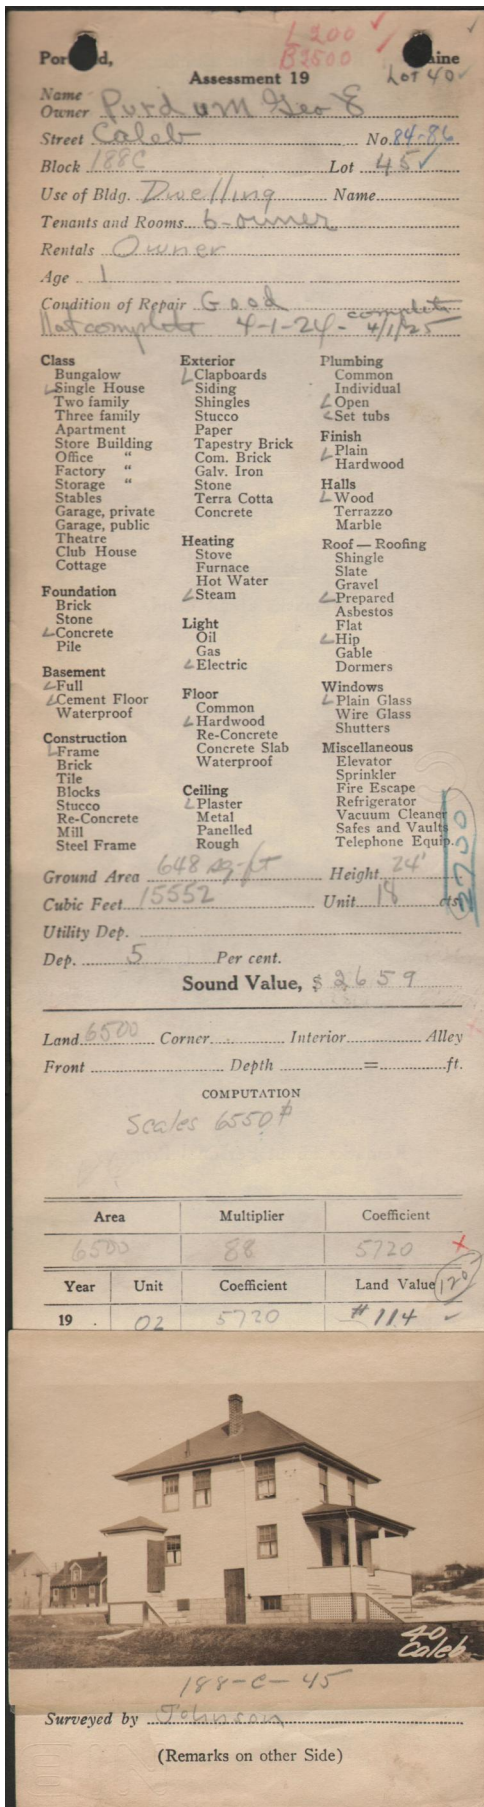 L 200
B 2500
Portland, Maine
Assessment 19 Lot 40
Name
Owner Purdum Geo E
Street Caleb No. 84-86
Block 188C Lot 45
Use of Bldg. Dwelling Name
Tenants and Rooms 6-owner
Rentals Owner
Age 1
Condition of Repair Good complete
Not complete 4-1-24- 4/1/25
Class
Bungalow
Single House
Two family
Three family
Apartment
Store Building
Office "
Factory "
Storage "
Stables
Garage, private
Garage, public
Theatre
Club House
Cottage
Foundation
Brick
Stone
Concrete
Pile
Basement
Full
Cement Floor
Waterproof
Construction
Frame
Brick
Tile
Blocks
Stucco
Re-Concrete
Mill
Steel Frame
Exterior
Clapboards
Siding
Shingles
Stucco
Paper
Tapestry Brick
Com. Brick
Galv. Iron
Stone
Terra Cotta
Concrete
Heating
Stove
Furnace
Hot Water
Steam
Light
Oil
Gas
Electric
Floor
Common
Hardwood
Re-Concrete
Concrete Slab
Waterproof
Ceiling
Plaster
Metal
Panelled
Rough
Plumbing
Common
Individual
Open
Set tubs
Finish
Plain
Hardwood
Halls
Wood
Terrazzo
Marble
Roof — Roofing
Shingle
Slate
Gravel
Prepared
Asbestos
Flat
Hip
Gable
Dormers
Windows
Plain Glass
Wire Glass
Shutters
Miscellaneous
Elevator
Sprinkler
Fire Escape
Refrigerator
Vacuum Cleaner
Safes and Vaults
Telephone Equip.
2700
Ground Area 648 sq-ft Height 24'
Cubic Feet 15552 Unit 18 cts.
Utility Dep.
Dep. 5 Per cent.
Sound Value, $ 2659
Land 6500 Corner Interior Alley
Front Depth = ft.
COMPUTATION
Scales 6550
Area Multiplier Coefficient
6500 88 5720
Year Unit Coefficient Land Value 120
19 02 5720 # 114
40
Caleb
188-C-45
Surveyed by Johnson
(Remarks on other Side)